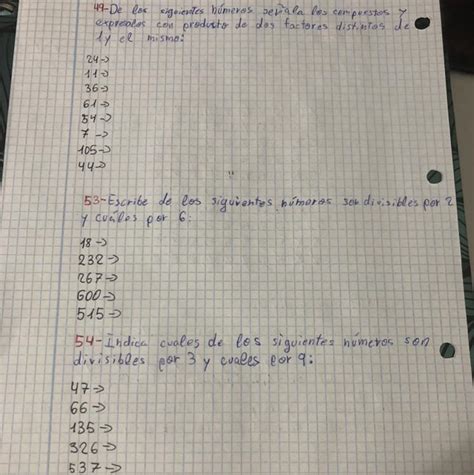 49-De los siguientes números señala los compuestos y
expresalos con producto de dos factores distintos de
1 y el mismo:
24->
11->
36->
61->
54->
7->
105->
44->
53-Escribe de los siguientes números son divisibles por 2
y cuáles por 6:
18->
232->
267->
600->
515->
54-Indica cuales de los siguientes números son
divisibles por 3 y cuales por 9:
47->
66->
135->
326->
537->